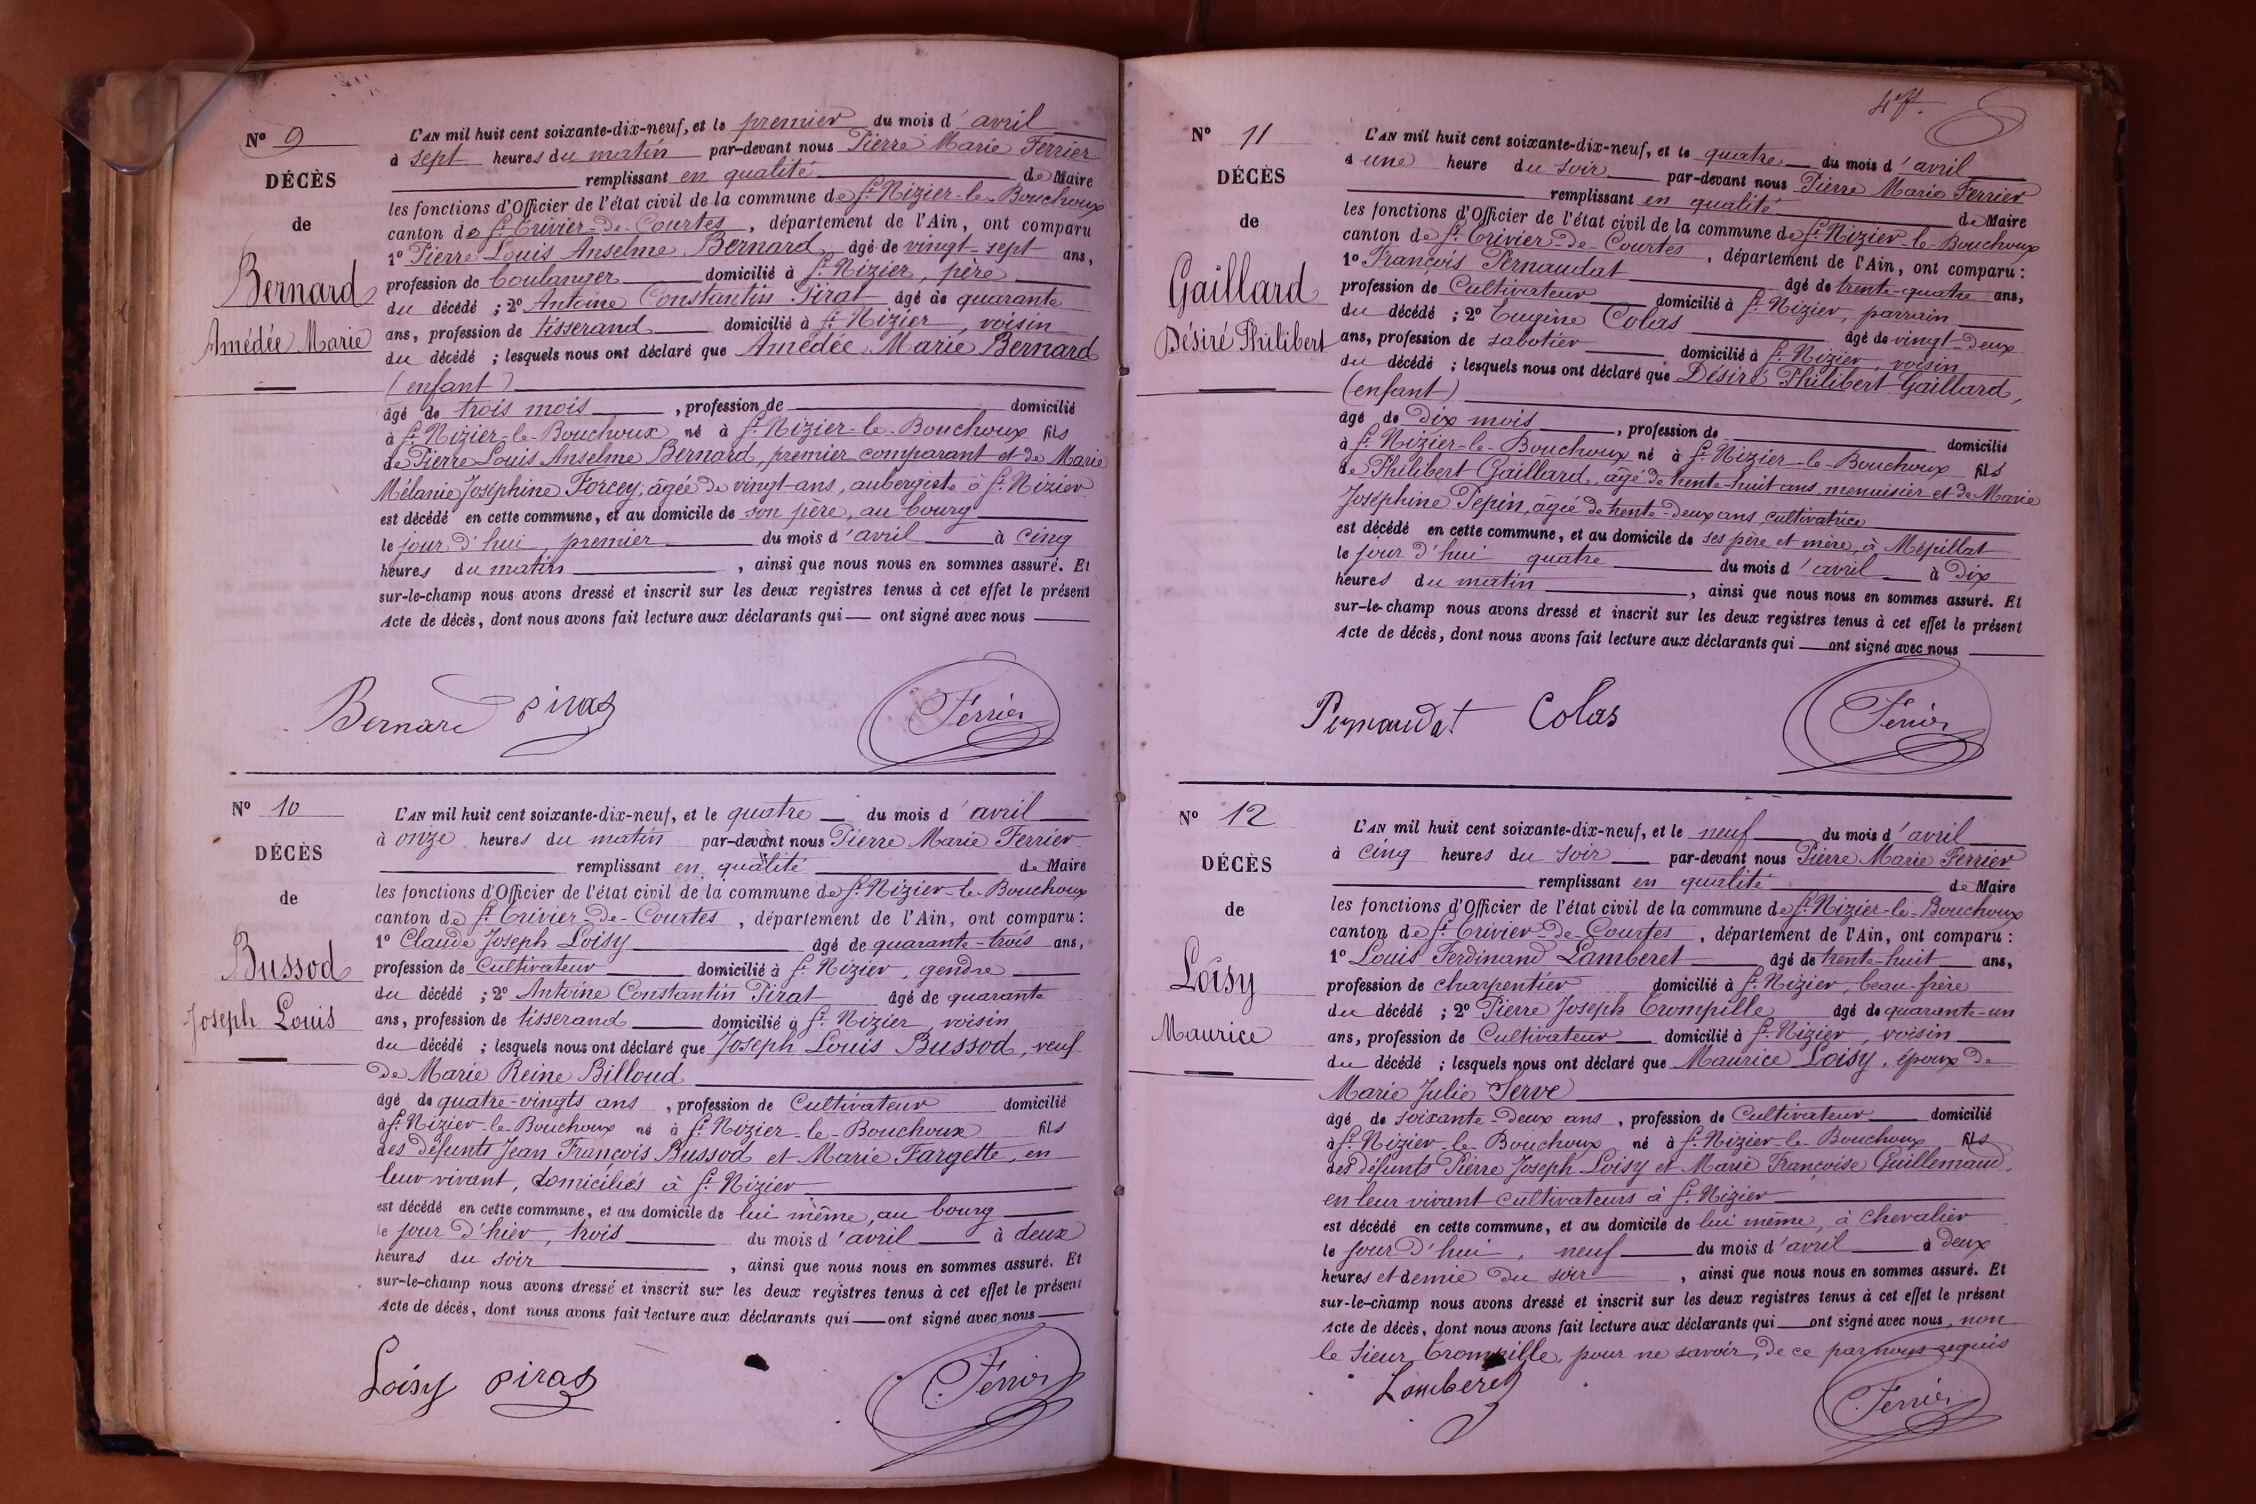 Nº 9
DÉCÈS
de
Bernard
Amédée Marie
L'AN mil huit cent soixante-dix-neuf, et le premier du mois d'avril
à sept heures du matin par-devant nous Pierre Marie Ferrier
remplissant en qualité de Maire
les fonctions d'Officier de l'état civil de la commune de St. Nizier-le-Bouchoux
canton de St. Trivier-de-Courtes, département de l'Ain, ont comparu
1º Pierre Louis Anselme Bernard âgé de vingt-sept ans,
profession de boulanger domicilié à St. Nizier, père
du décédé ; 2º Antoine Constantin Pirat âgé de quarante
ans, profession de tisserand domicilié à St. Nizier, voisin
du décédé ; lesquels nous ont déclaré que Amédée Marie Bernard
(enfant)
âgé de trois mois, profession de domicilié
à St. Nizier-le-Bouchoux né à St. Nizier-le-Bouchoux fils
de Pierre Louis Anselme Bernard, premier comparant et de Marie
Mélanie Joséphine Forcey, âgée de vingt ans, aubergiste à St. Nizier
est décédé en cette commune, et au domicile de son père, au bourg
le jour d'hui, premier du mois d'avril à cinq
heures du matin, ainsi que nous nous en sommes assuré. Et
sur-le-champ nous avons dressé et inscrit sur les deux registres tenus à cet effet le présent
Acte de décès, dont nous avons fait lecture aux déclarants qui — ont signé avec nous
Bernard Pirat Ferrier
Nº 10
DÉCÈS
de
Bussod
Joseph Louis
L'AN mil huit cent soixante-dix-neuf, et le quatre du mois d'avril
à onze heures du matin par-devant nous Pierre Marie Ferrier
remplissant en qualité de Maire
les fonctions d'Officier de l'état civil de la commune de St. Nizier-le-Bouchoux
canton de St. Trivier-de-Courtes, département de l'Ain, ont comparu :
1º Claude Joseph Loisy âgé de quarante-trois ans,
profession de Cultivateur domicilié à St. Nizier, gendre
du décédé ; 2º Antoine Constantin Pirat âgé de quarante
ans, profession de tisserand domicilié à St. Nizier, voisin
du décédé ; lesquels nous ont déclaré que Joseph Louis Bussod, veuf
de Marie Reine Billoud
âgé de quatre-vingts ans, profession de Cultivateur domicilié
à St. Nizier-le-Bouchoux né à St. Nizier-le-Bouchoux fils
des défunts Jean François Bussod et Marie Fargette, en
leur vivant, domiciliés à St. Nizier
est décédé en cette commune, et au domicile de lui même, au bourg
le jour d'hier, trois du mois d'avril à deux
heures du soir, ainsi que nous nous en sommes assuré. Et
sur-le-champ nous avons dressé et inscrit sur les deux registres tenus à cet effet le présent
Acte de décès, dont nous avons fait lecture aux déclarants qui — ont signé avec nous
Loisy Pirat Ferrier
Nº 11
DÉCÈS
de
Gaillard
Désiré Philibert
L'AN mil huit cent soixante-dix-neuf, et le quatre du mois d'avril
à une heure du soir par-devant nous Pierre Marie Ferrier
remplissant en qualité de Maire
les fonctions d'Officier de l'état civil de la commune de St. Nizier-le-Bouchoux
canton de St. Trivier-de-Courtes, département de l'Ain, ont comparu :
1º François Pernaudat âgé de trente-quatre ans,
profession de Cultivateur domicilié à St. Nizier, parrain
du décédé ; 2º Eugène Colas âgé de vingt-deux
ans, profession de sabotier domicilié à St. Nizier, voisin
du décédé ; lesquels nous ont déclaré que Désiré Philibert Gaillard,
(enfant)
âgé de dix mois, profession de domicilié
à St. Nizier-le-Bouchoux né à St. Nizier-le-Bouchoux fils
de Philibert Gaillard, âgé de trente-huit ans, menuisier et de Marie
Joséphine Pepin, âgée de trente-deux ans, cultivatrice
est décédé en cette commune, et au domicile de ses père et mère, à Mépillat
le jour d'hui quatre du mois d'avril à dix
heures du matin, ainsi que nous nous en sommes assuré. Et
sur-le-champ nous avons dressé et inscrit sur les deux registres tenus à cet effet le présent
Acte de décès, dont nous avons fait lecture aux déclarants qui — ont signé avec nous
Pernaudat Colas Ferrier
Nº 12
DÉCÈS
de
Loisy
Maurice
L'AN mil huit cent soixante-dix-neuf, et le neuf du mois d'avril
à cinq heures du soir par-devant nous Pierre Marie Ferrier
remplissant en qualité de Maire
les fonctions d'Officier de l'état civil de la commune de St. Nizier-le-Bouchoux
canton de St. Trivier-de-Courtes, département de l'Ain, ont comparu :
1º Louis Ferdinand Lamberet âgé de trente-huit ans,
profession de charpentier domicilié à St. Nizier, beau-frère
du décédé ; 2º Pierre Joseph Trompille âgé de quarante-un
ans, profession de Cultivateur domicilié à St. Nizier, voisin
du décédé ; lesquels nous ont déclaré que Maurice Loisy, époux de
Marie Julie Serve
âgé de soixante-deux ans, profession de Cultivateur domicilié
à St. Nizier-le-Bouchoux né à St. Nizier-le-Bouchoux fils
des défunts Pierre Joseph Loisy et Marie Françoise Guillemaud,
en leur vivant cultivateurs à St. Nizier
est décédé en cette commune, et au domicile de lui même, à Chevalier
le jour d'hui, neuf du mois d'avril à deux
heures et demie du soir, ainsi que nous nous en sommes assuré. Et
sur-le-champ nous avons dressé et inscrit sur les deux registres tenus à cet effet le présent
Acte de décès, dont nous avons fait lecture aux déclarants qui — ont signé avec nous, non
le Sieur Trompille, pour ne savoir, de ce par nous requis
Lamberet Ferrier